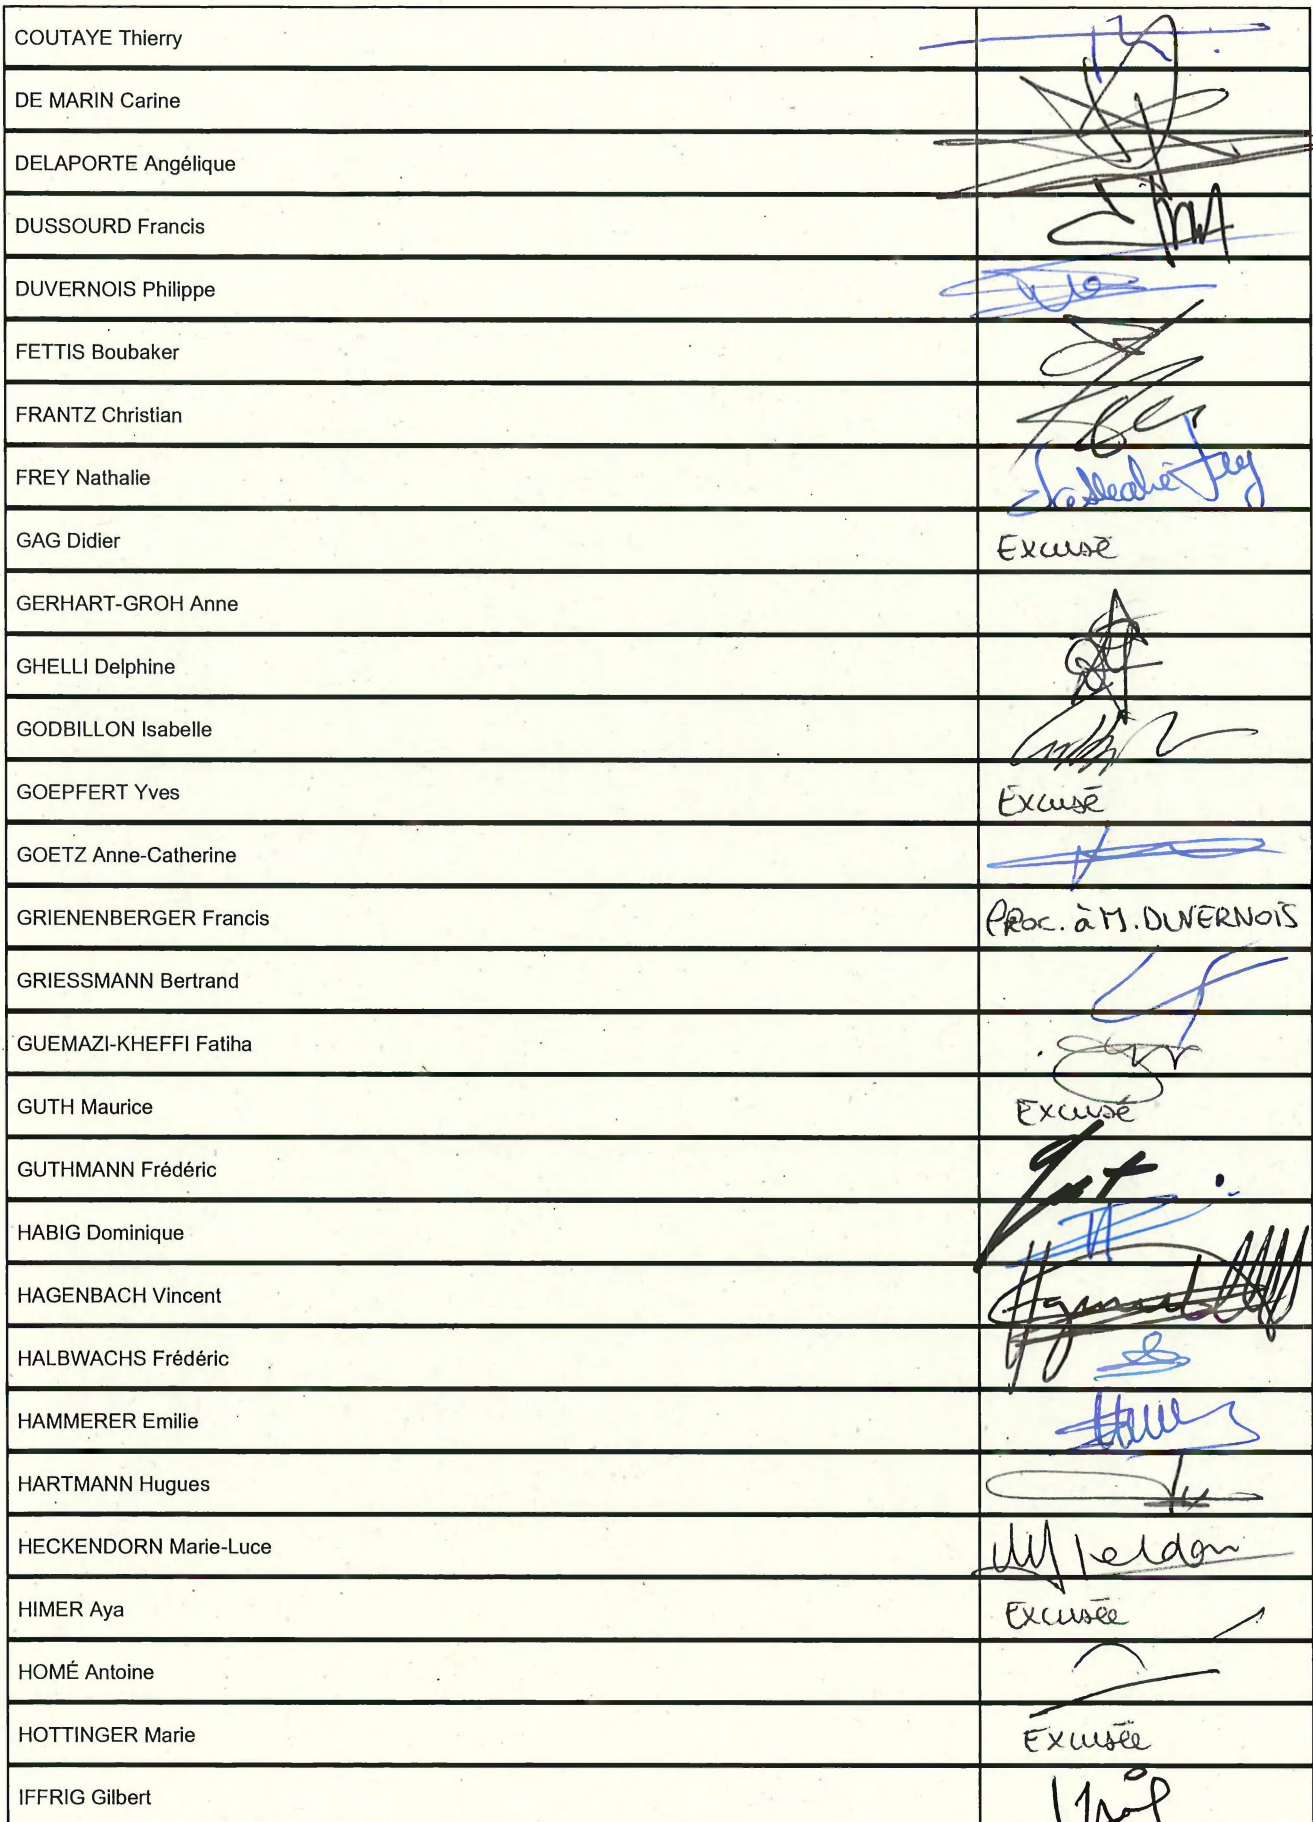 COUTAYE Thierry
DE MARIN Carine
DELAPORTE Angélique
DUSSOURD Francis
DUVERNOIS Philippe
FETTIS Boubaker
FRANTZ Christian
FREY Nathalie
GAG Didier Excusé
GERHART-GROH Anne
GHELLI Delphine
GODBILLON Isabelle
GOEPFERT Yves Excusé
GOETZ Anne-Catherine
GRIENENBERGER Francis PROC. à M. DUVERNOIS
GRIESSMANN Bertrand
GUEMAZI-KHEFFI Fatiha
GUTH Maurice Excusé
GUTHMANN Frédéric
HABIG Dominique
HAGENBACH Vincent
HALBWACHS Frédéric
HAMMERER Emilie
HARTMANN Hugues
HECKENDORN Marie-Luce
HIMER Aya Excusée
HOMÉ Antoine
HOTTINGER Marie Excusée
IFFRIG Gilbert